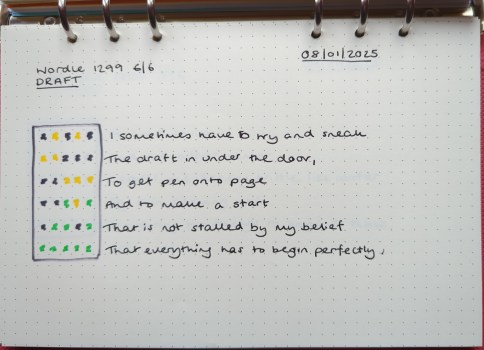 08/01/2025
Wordle 1299 6/6
DRAFT
I sometimes have to try and sneak
The draft in under the door,
To get pen onto page
And to make a start
That is not stalled by my belief
That everything has to begin perfectly.